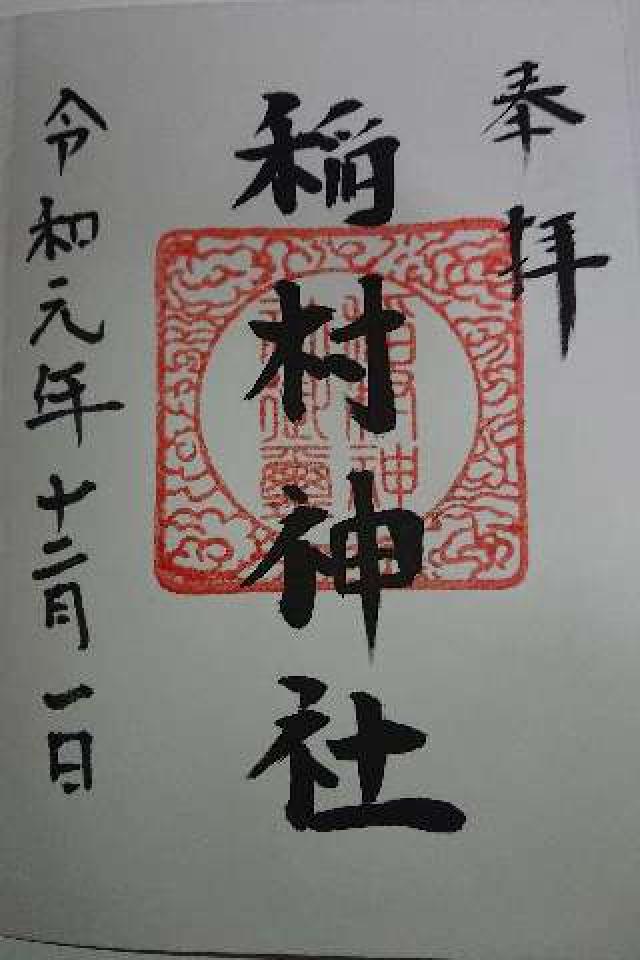 奉拝
稲村神社
令和元年十二月一日